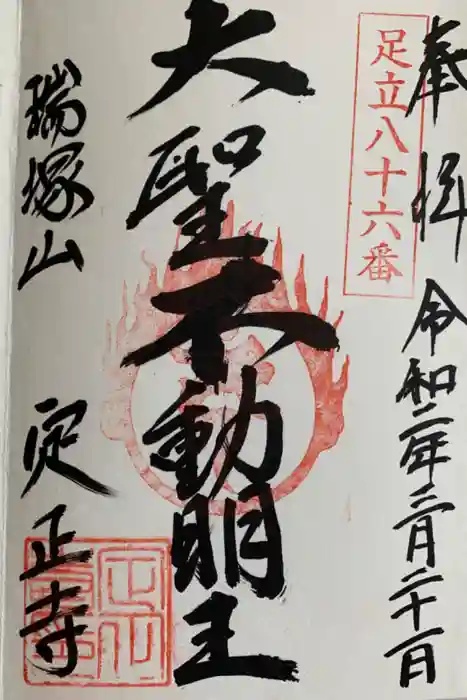 奉拝 令和二年三月二十一日
足立八十六番
大聖不動明王
瑞塚山 定正寺